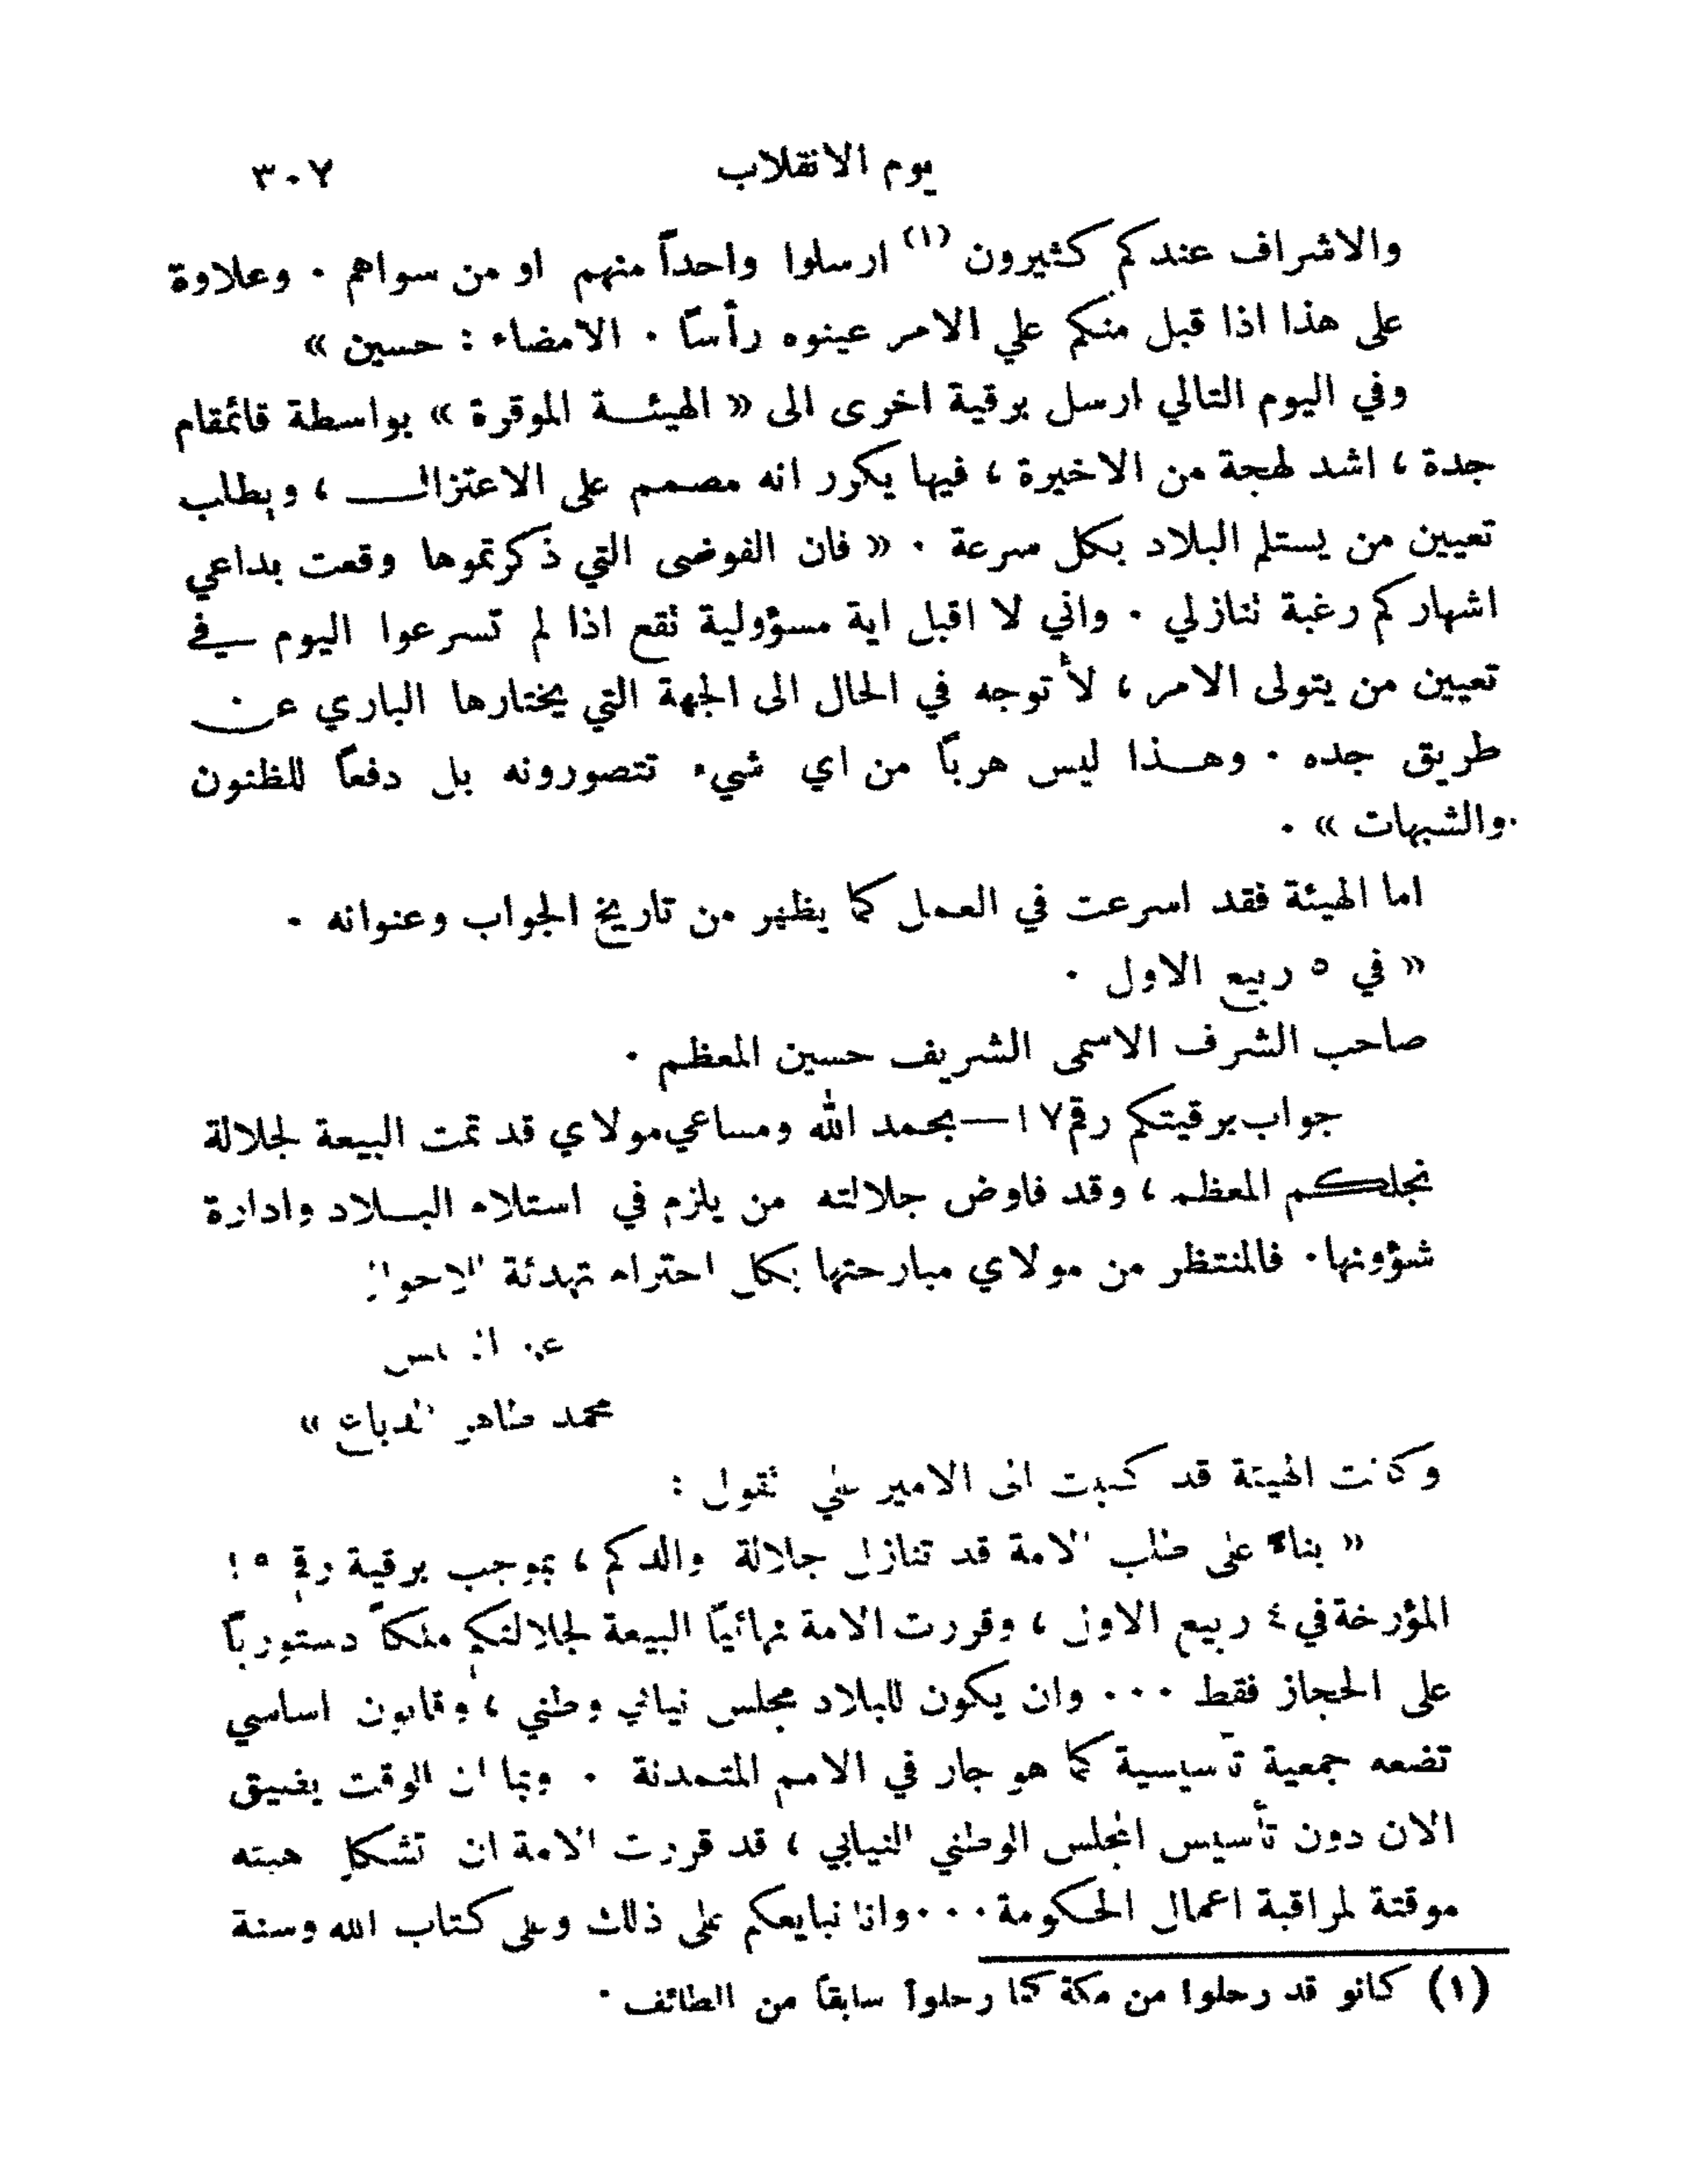 يوم الانقلاب ٣٠٧
والاشراف عندكم كثيرون (١) ارسلوا واحداً منهم او من سواهم . وعلاوة
على هذا اذا قبل منكم علي الامر عينوه رأساً . الامضاء : حسين »
وفي اليوم التالي ارسل برقية اخرى الى « الهيئة الموقرة » بواسطة قائمقام
جدة ، اشد لهجة من الاخيرة ، فيها يكرر انه مصمم على الاعتزال ، ويطلب
تعيين من يستلم البلاد بكل سرعة . « فان الفوضى التي ذكرتموها وقعت بداعي
اشهاركم رغبة تنازلي . واني لا اقبل اية مسؤولية تقع اذا لم تسرعوا اليوم في
تعيين من يتولى الامر ، لأتوجه في الحال الى الجهة التي يختارها الباري عن
طريق جده . وهذا ليس هرباً من اي شيء تتصورونه بل دفعاً للظنون
والشبهات » .
اما الهيئة فقد اسرعت في العمل كما يظهر من تاريخ الجواب وعنوانه .
« في ٥ ربيع الاول .
صاحب الشرف الاسمى الشريف حسين المعظم .
جواب برقيتكم رقم ١٧ — بحمد الله ومساعي مولاي قد تمت البيعة لجلالة
نجلكم المعظم ، وقد فاوض جلالته من يلزم في استلام البلاد وادارة
شؤونها . فالمنتظر من مولاي مبارحتها بكل احترام تهدئة الاحوال
محمد طاهر الدباغ »
وكانت الهيئة قد كتبت الى الامير علي تقول :
« بناء على طلب الامة قد تنازل جلالة والدكم ، بموجب برقية رقم ١٥
المؤرخة في ٤ ربيع الاول ، وقررت الامة نهائياً البيعة لجلالتكم ملكاً دستورياً
على الحجاز فقط ... وان يكون للبلاد مجلس نيابي وطني ، وقانون اساسي
تضعه جمعية تأسيسية كما هو جار في الامم المتمدنة . وبما ان الوقت يضيق
الان دون تأسيس المجلس الوطني النيابي ، قد قررت الامة ان تشكل هيئه
موقتة لمراقبة اعمال الحكومة ... وانا نبايعكم على ذلك وعلى كتاب الله وسنة
(١) كانو قد رحلوا من مكة كما رحلوا سابقاً من الطائف .